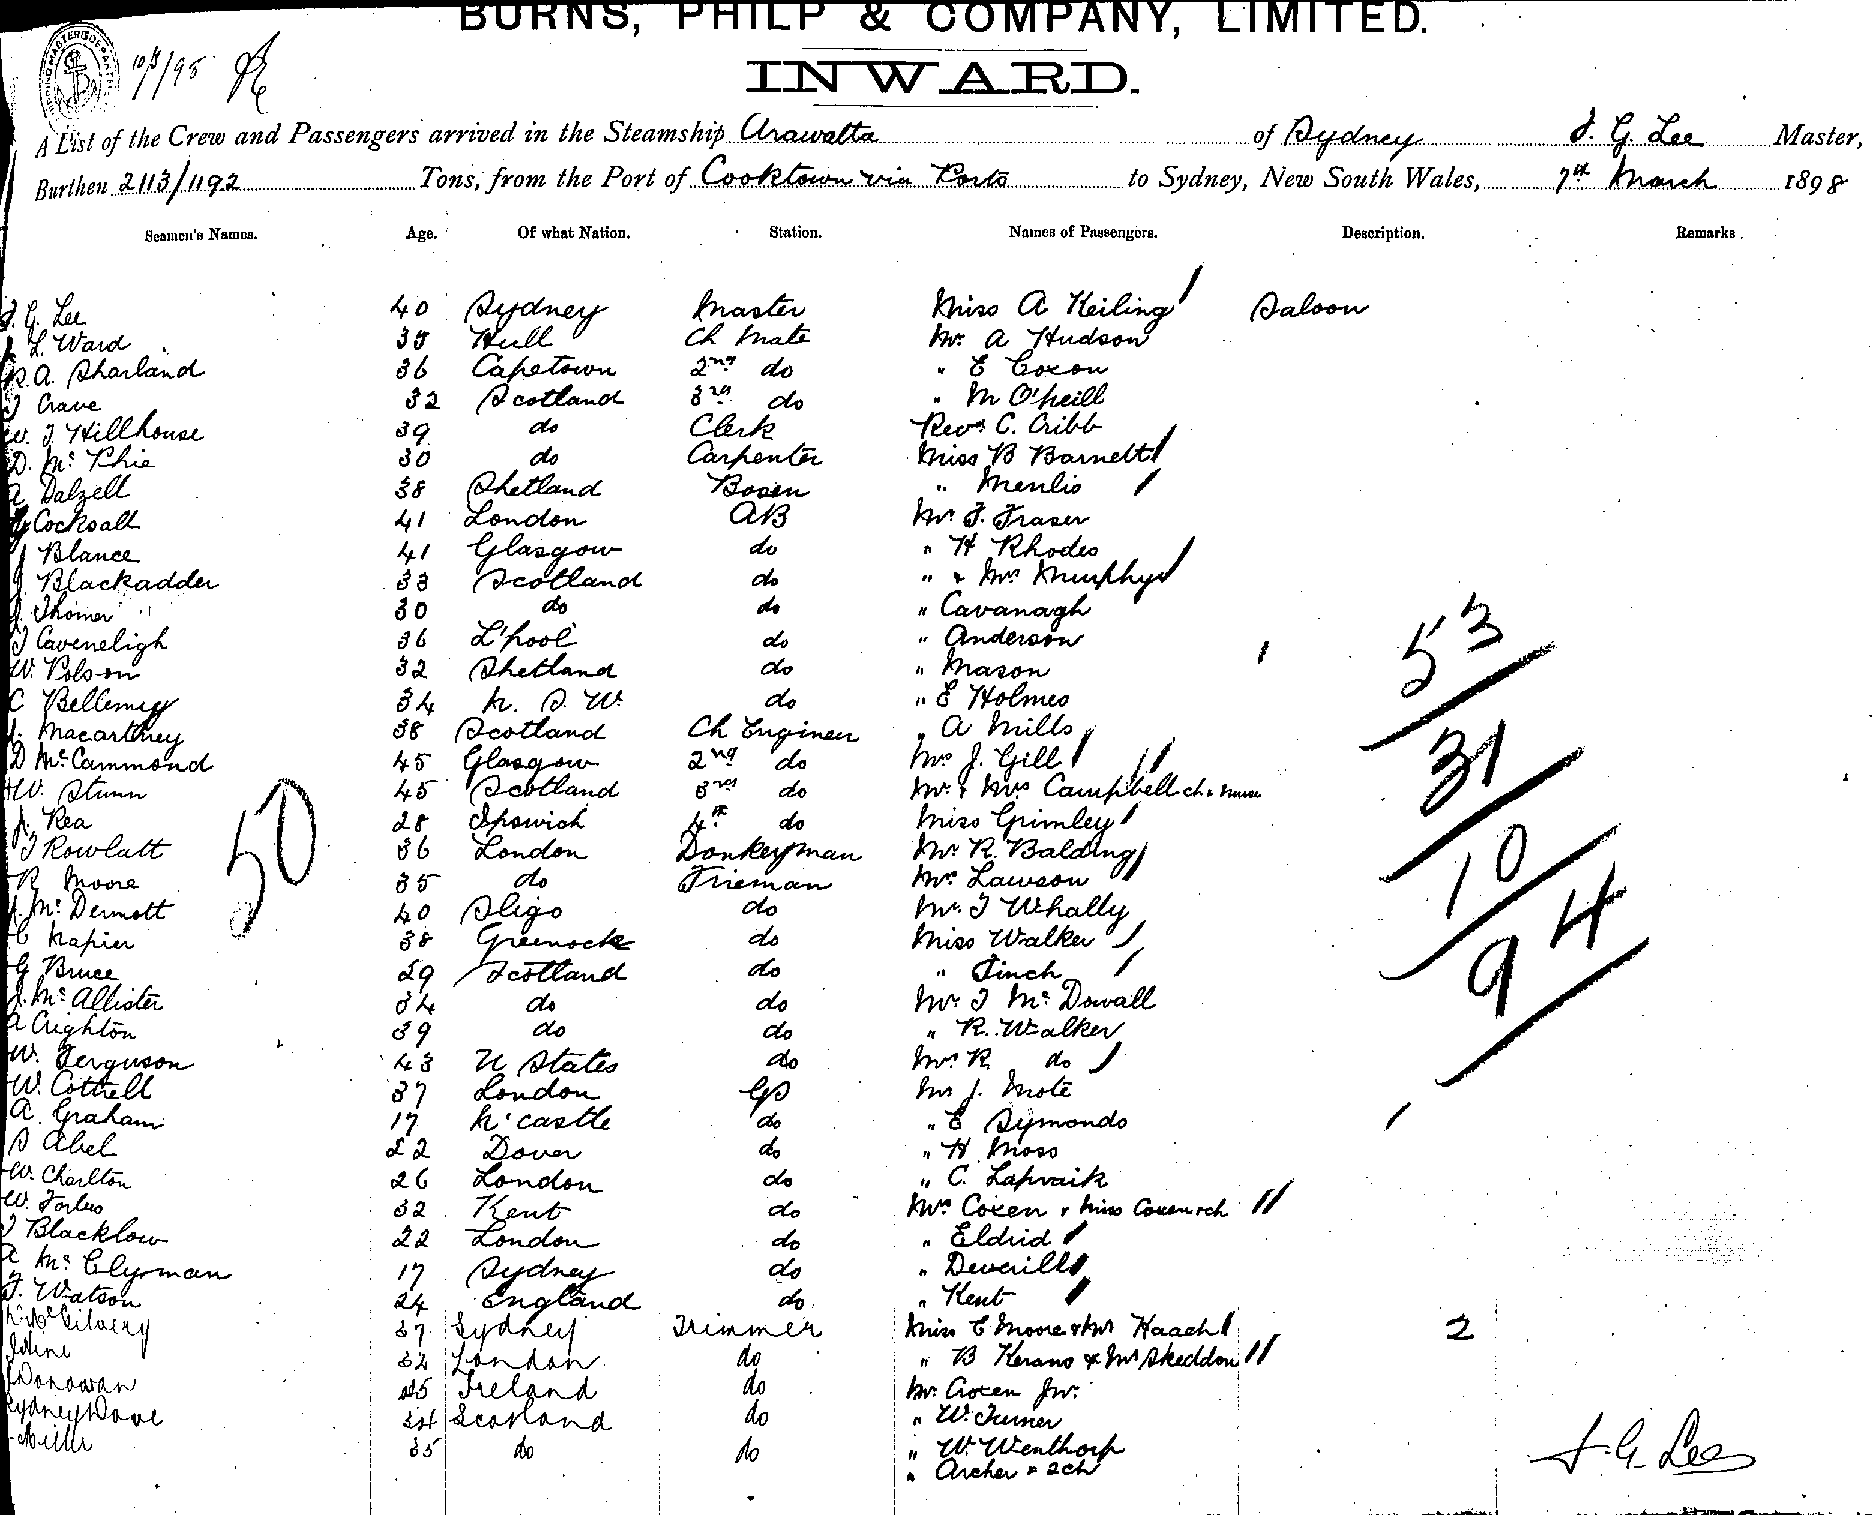 BURNS, PHILP & COMPANY, LIMITED.
INWARD.
A List of the Crew and Passengers arrived in the Steamship Arawatta of Sydney J. G. Lee Master,
Burthen 2113/1192 Tons, from the Port of Cooktown via Ports to Sydney, New South Wales, 7th March 1898
Seamen's Names. Age. Of what Nation. Station. Names of Passengers. Description. Remarks.
J. G. Lee 40 Sydney Master Miss A Keiling Saloon
L. Ward 35 Hull Ch Mate Mr A Hudson
A. Sharland 36 Capetown 2nd do " E Coxon
J Crave 32 Scotland 3rd do " M O'Neill
W. J Hillhouse 39 do Clerk Revd C. Cribb
D. Mc Phie 30 do Carpenter Miss B Barnett
A Dalzell 38 Shetland Bosen " Menlis
Cocksall 41 London AB Mr J. Fraser
J Blance 41 Glasgow do " H Rhodes
J Blackadder 33 Scotland do " & Mrs Murphy
J. Thomer 30 do do " Cavanagh
J Caveneligh 36 L'pool do " Anderson
W. Polson 32 Shetland do " Mason
C Bellemey 34 N. S. W. do " E Holmes
J. Macartney 38 Scotland Ch Engineer " A Mills
D McCammond 45 Glasgow 2nd do Mrs J. Gill
W. Stunn 45 Scotland 3rd do Mr & Mrs Campbell ch & nurse
J. Rea 28 Ipswich 4th do Miss Grimley
J Rowlatt 36 London Donkeyman Mr R. Balding
R Moore 35 do Frieman Mrs Lawson
J. Mc Dermott 40 Sligo do Mr J Whally
C Napier 38 Greenock do Miss Walker
G Bruce 29 Scotland do " Finch
J. McAllister 34 do do Mr J Mc Dowall
A Crighton 39 do do " R. Walker
W. Ferguson 43 U States do Mrs R do
W. Cottrell 37 London GS Mr J. Mote
A. Graham 17 N'castle do " E Symonds
S Abel 22 Dover do " H Moss
W. Charlton 26 London do " C. Lapraik
W. Forbes 32 Kent do Mrs Coxen & Miss Coxen & ch
J Blacklow 22 London do " Eldrid
A Mc Clyman 17 Sydney do " Deverill
J. Watson 24 England do " Kent
McGilvery 37 Sydney Trimmer Miss E Moore & Mrs Haach 2
32 London do " B Kerans & Mrs Skeddon
Donowan 25 Ireland do Mr Coxen Jnr
Sydney Dove 34 Scotland do " W. Turner
35 do do " W. Wenthorp
" Archer & 2 ch
50
53
31
10
94
J. G. Lee